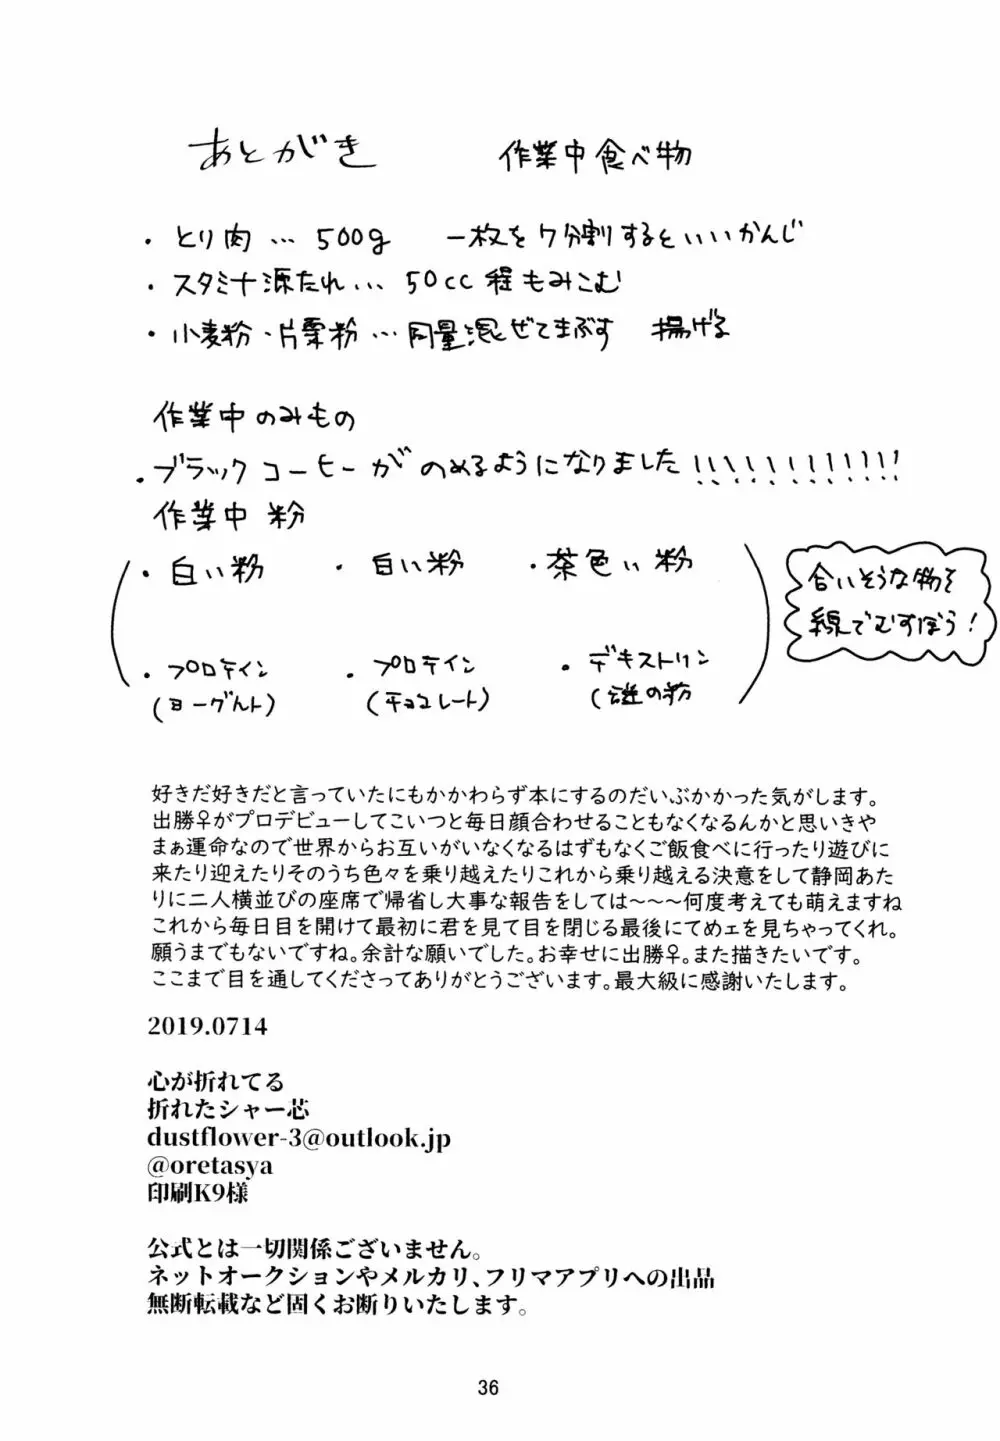 あとがき　作業中食べ物
・とり肉…500g　一枚を7分割するといいかんじ
・スタミナ源たれ…50cc程もみこむ
・小麦粉・片栗粉…同量混ぜてまぶす　揚げる
作業中のみもの
・ブラックコーヒーがのめるようになりました!!!!!!!!!!!!
作業中粉
・白い粉　・白い粉　・茶色い粉
・プロテイン　・プロテイン　・デキストリン
(ヨーグルト)　(チョコレート)　(謎の粉
合いそうな物を
線でむすぼう!
好きだ好きだと言っていたにもかかわらず本にするのだいぶかかった気がします。
出勝♀がプロデビューしてこいつと毎日顔合わせることもなくなるんかと思いきや
まぁ運命なので世界からお互いがいなくなるはずもなくご飯食べに行ったり遊びに
来たり迎えたりそのうち色々を乗り越えたりこれから乗り越える決意をして静岡あた
りに二人横並びの座席で帰省し大事な報告をしては～～～何度考えても萌えますね
これから毎日目を開けて最初に君を見て目を閉じる最後にてめェを見ちゃってくれ。
願うまでもないですね。余計な願いでした。お幸せに出勝♀。また描きたいです。
ここまで目を通してくださってありがとうございます。最大級に感謝いたします。
2019.0714
心が折れてる
折れたシャー芯
dustflower-3@outlook.jp
@oretasya
印刷K9様
公式とは一切関係ございません。
ネットオークションやメルカリ、フリマアプリへの出品
無断転載など固くお断りいたします。
36